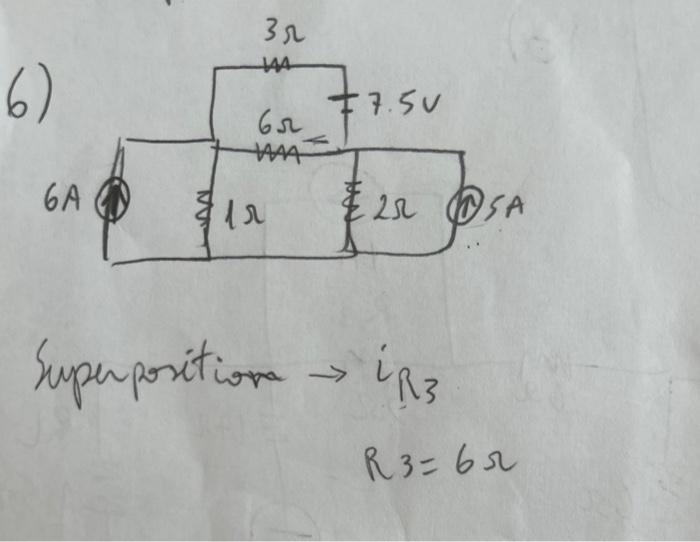 3Ω
6)
7.5V
6Ω
6A
1Ω
2Ω
5A
Superposition → i R3
R3 = 6Ω